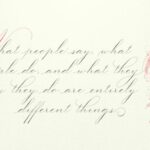 hat people say, what
ple do, and what they
y they do are entirely
different things.